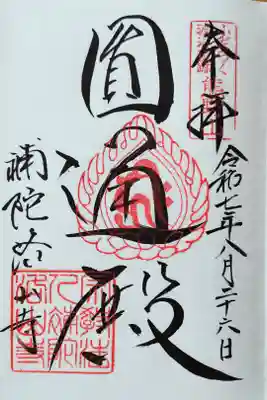 奉拝
令和七年八月二十六日
圓通殿
補陀洛山寺